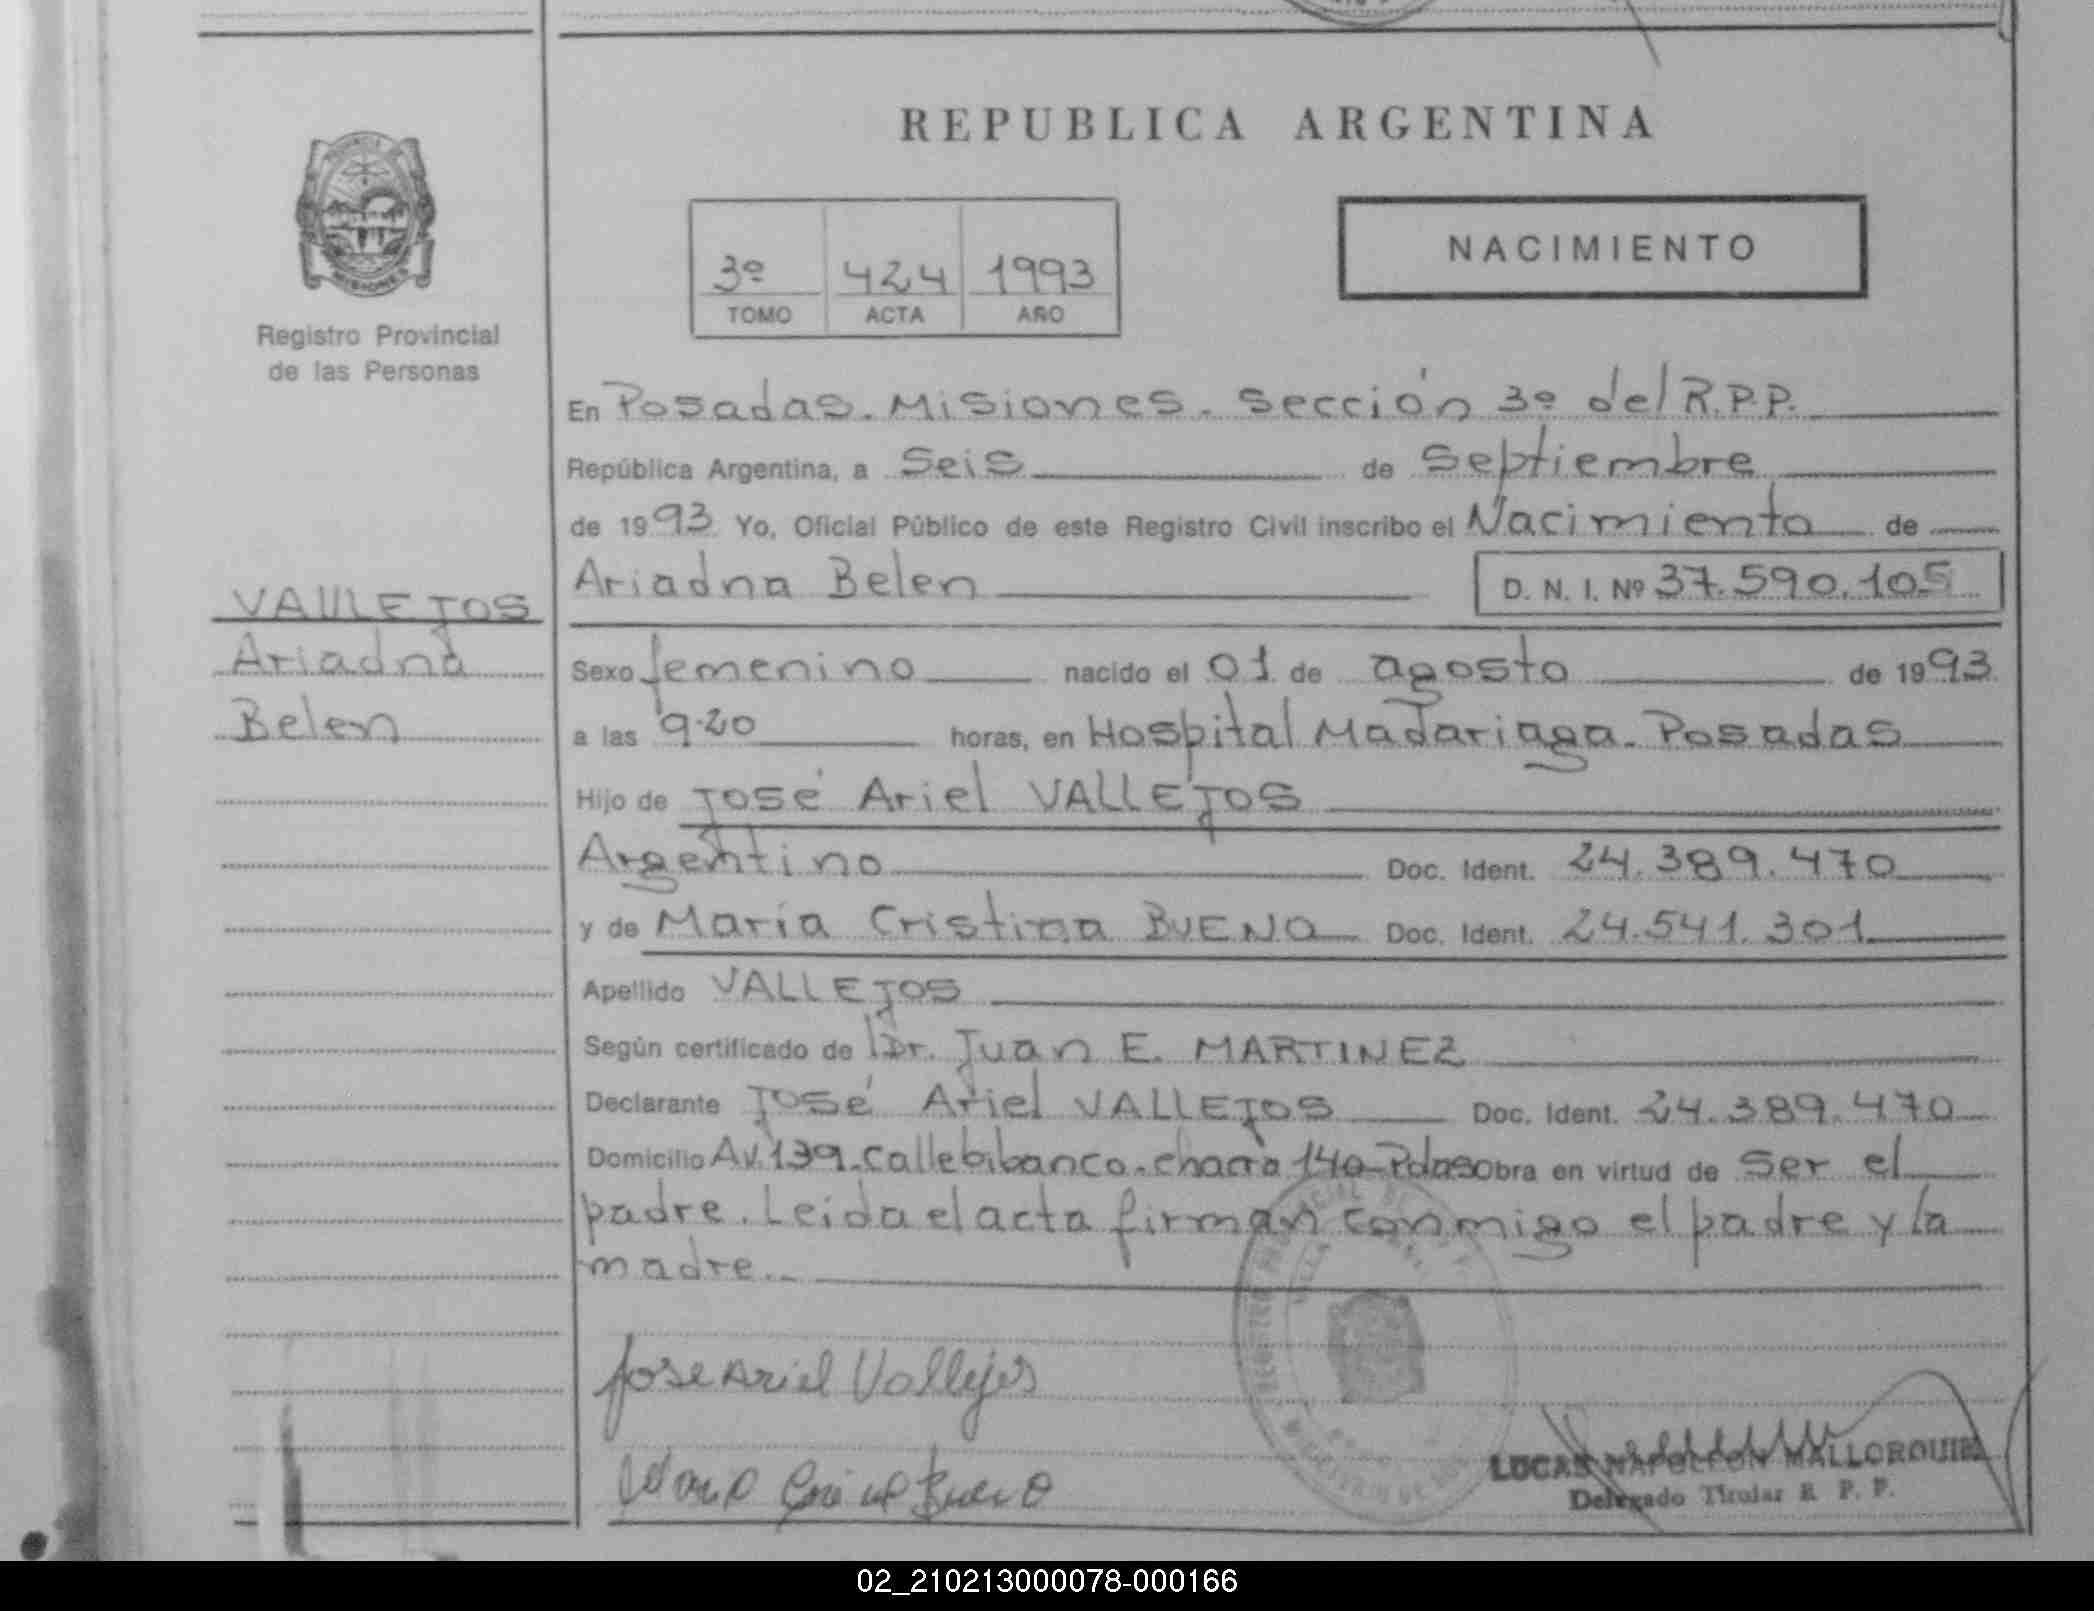 REPUBLICA ARGENTINA
Registro Provincial
de las Personas
3º 424 1993
TOMO ACTA AÑO
NACIMIENTO
En Posadas. Misiones. Sección 3º del R.P.P.
República Argentina, a Seis de Septiembre
de 1993 Yo, Oficial Público de este Registro Civil inscribo el Nacimiento de
Ariadna Belen D. N. I. Nº 37.590.105
VALLEJOS
Ariadna
Belen
Sexo femenino nacido el 01 de agosto de 1993
a las 9.20 horas, en Hospital Madariaga. Posadas
Hijo de José Ariel VALLEJOS
Argentino Doc. Ident. 24.389.470
y de María Cristina BUENO Doc. Ident. 24.541.301
Apellido VALLEJOS
Según certificado de Dr. Juan E. MARTINEZ
Declarante José Ariel VALLEJOS Doc. Ident. 24.389.470
Domicilio Av. 139. Calle bibanco. chacra 140 Pdas obra en virtud de Ser el
padre. Leida el acta firman conmigo el padre y la
madre.
Jose Ariel Vallejos
Bueno
LUCAS NAPOLEON MALLORQUIN
Delegado Titular R. P. P.
02_210213000078-000166